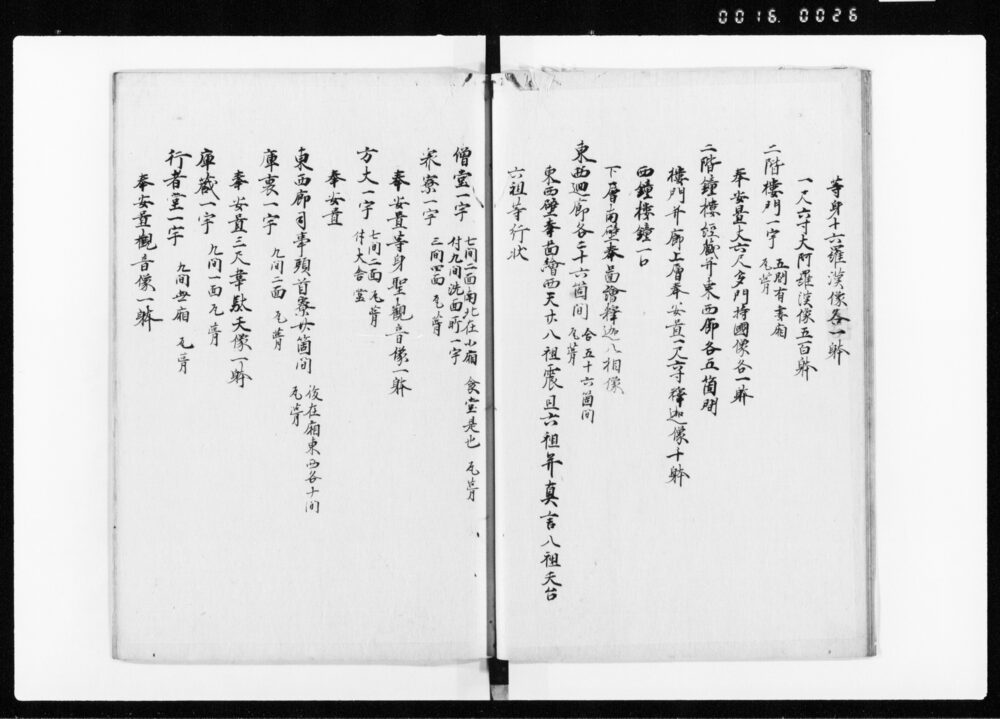 0016 0026
等身十六羅漢像各一躰
一尺六寸大阿羅漢像五百躰
二階樓門一宇 五間有孝廂 瓦葺
奉安置丈六尺多門持國像各一躰
二階鐘樓經蔵并東西廊各五箇間
樓門并廊上層奉安置一尺六寸釋迦像十躰
西鐘樓鐘一口
下層南壁奉啚繪釋迦八相像
東西廻廊各二十六箇間 合五十六箇間 瓦葺
東西壁奉啚繪西天廿八祖震旦六祖并真言八祖天台
六祖等行状
僧堂一宇 七間二面南北在小廂 食堂是也 瓦葺
付九間洗面所一宇
衆寮一宇 三間四面 瓦葺
奉安置等身聖觀音像一躰
方丈一宇 七間二面瓦葺
付大舎堂
奉安置
東西廊司等頭首寮廿箇間 後在廂東西各十間
瓦葺
庫裏一宇 九間二面 瓦葺
奉安置三尺韋駄天像一躰
庫蔵一宇 九間一面 瓦葺
行者堂一宇 九間無廂 瓦葺
奉安置觀音像一躰